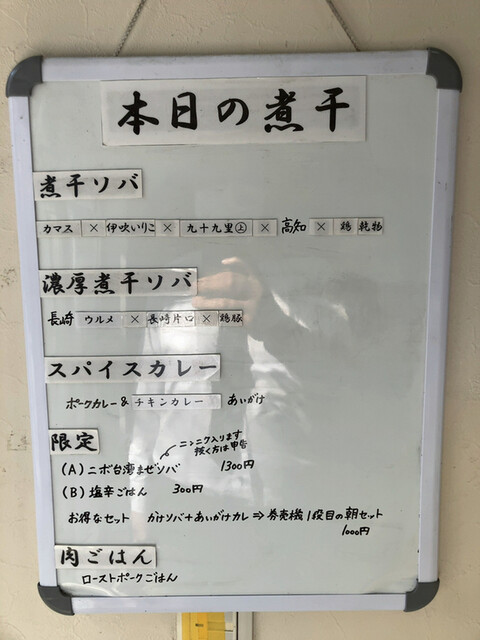 本日の煮干
煮干ソバ
カマス × 伊吹いりこ × 九十九里㊤ × 高知 × 鶏 乾物
濃厚煮干ソバ
長崎 ウルメ × 長崎片口 × 鶏豚
スパイスカレー
ポークカレー & チキンカレー あいがけ
限定
ニンニク入ります
抜く方は申告
(A) ニボ台湾まぜソバ 1300円
(B) 塩辛ごはん 300円
お得なセット かけソバ+あいがけカレ⇒券売機1段目の朝セット
1000円
肉ごはん
ローストポークごはん